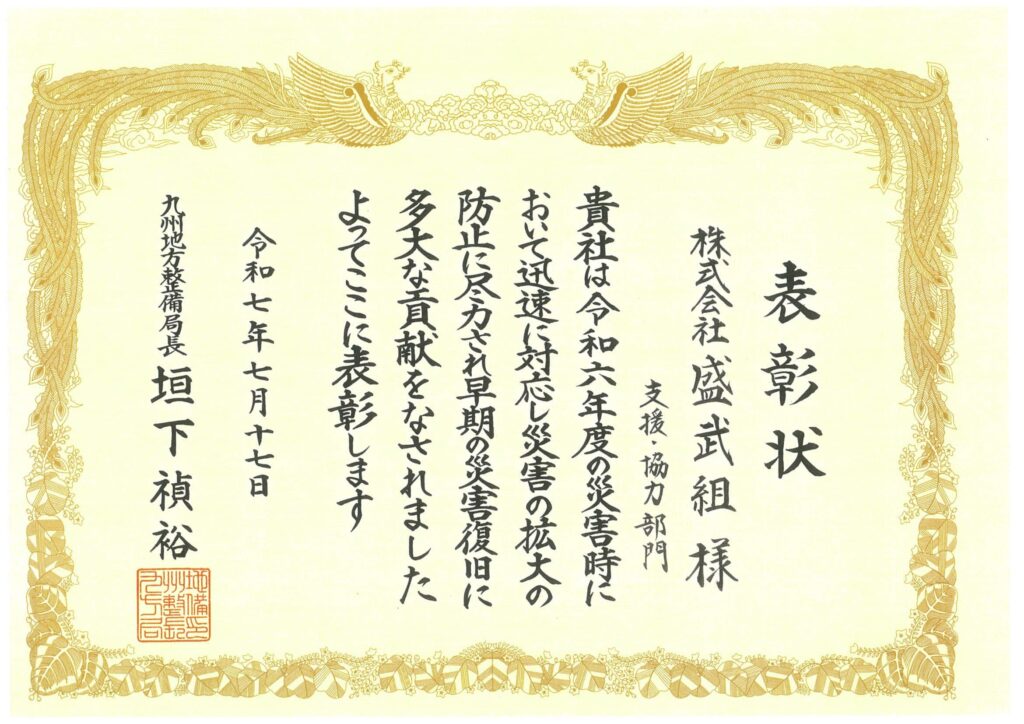 表彰状
株式会社盛武組 様
支援・協力部門
貴社は令和六年度の災害時に
おいて迅速に対応し災害の拡大の
防止に尽力され早期の災害復旧に
多大な貢献をなされました
よってここに表彰します
令和七年七月十七日
九州地方整備局長 垣下禎裕